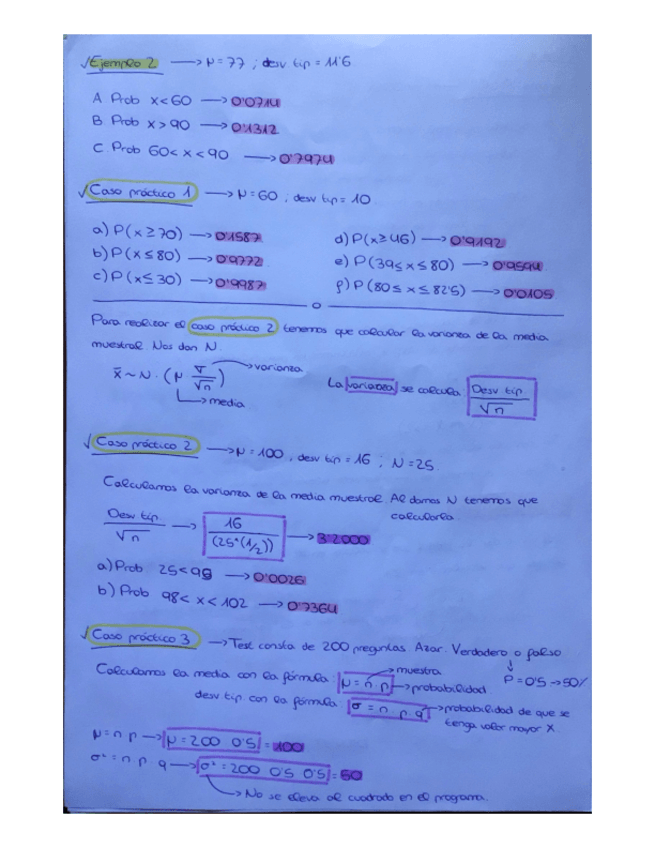 √ Ejemplo 2 → μ = 77 ; desv tip = 11'6
A. Prob x < 60 → 0'0714
B. Prob x > 90 → 0'1312
C. Prob 60 < x < 90 → 0'7974
√ Caso práctico 1 → μ = 60 ; desv tip = 10
a) P(x ≥ 70) → 0'1587
b) P(x ≤ 80) → 0'9772
c) P(x ≤ 30) → 0'9987
d) P(x ≥ 46) → 0'9192
e) P(39 ≤ x ≤ 80) → 0'9594
f) P(80 ≤ x ≤ 82'5) → 0'0105
Para realizar el caso práctico 2 tenemos que calcular la varianza de la media
muestral. Nos dan N.
x̄ ~ N · (μ · σ/√n) → varianza
→ media
La varianza se calcula: Desv tip / √n
√ Caso práctico 2 → μ = 100 , desv tip = 16 ; N = 25
Calculamos la varianza de la media muestral. Al darnos N tenemos que
calcularla
Desv tip. / √n → 16 / (25^(1/2)) → 3'2000
a) Prob 25 < 98 → 0'0026
b) Prob 98 < x < 102 → 0'7364
√ Caso práctico 3 → Test consta de 200 preguntas. Azar. Verdadero o falso
↓
P = 0'5 → 50%
Calculamos la media con la fórmula: μ = n · p → muestra → probabilidad
desv tip con la fórmula: σ = n · p · q → probabilidad de que se
tenga valor mayor X.
μ = n · p → μ = 200 · 0'5 = 100
σ² = n · p · q → σ² = 200 · 0'5 · 0'5 = 50
→ No se eleva al cuadrado en el programa.